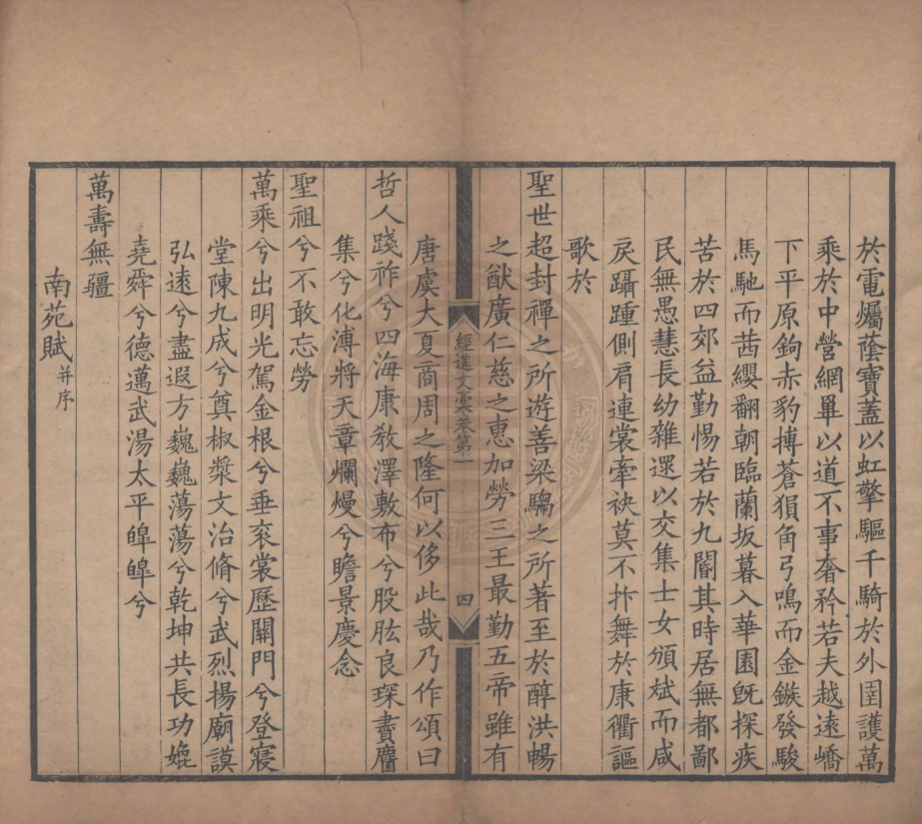 於電爥蔭寶蓋以虹擎驅千騎於外圉護萬
乘於中營網罼以道不事奢矜若夫越遠嶠
下平原鉤赤豹搏蒼狽角弓鳴而金鏃發駿
馬馳而茜纓翻朝臨蘭坂暮入華園旣探疾
苦於四郊益勤惕若於九閽其時居無都鄙
民無愚慧長幼雜還以交集士女頒斌而咸
戾躡踵側肩連裳牽袂莫不抃舞於康衢謳
歌於
聖世超封禪之所遊善梁騶之所著至於醇洪暢
之猷廣仁慈之惠加勞三王最勤五帝雖有
經進文稾卷第一
四
唐虞大夏商周之隆何以侈此哉乃作頌曰
哲人踐祚兮四海康敎澤敷布兮股肱良琛賮麕
集兮化溥將天章爛熳兮瞻景慶念
聖祖兮不敢忘勞
萬乘兮出明光駕金根兮垂衮裳歷關門兮登寢
堂陳九成兮奠椒漿文治脩兮武烈揚廟謨
弘遠兮盡遐方巍巍蕩蕩兮乾坤共長功媲
堯舜兮德邁武湯太平皥皥兮
萬壽無疆
南苑賦并序